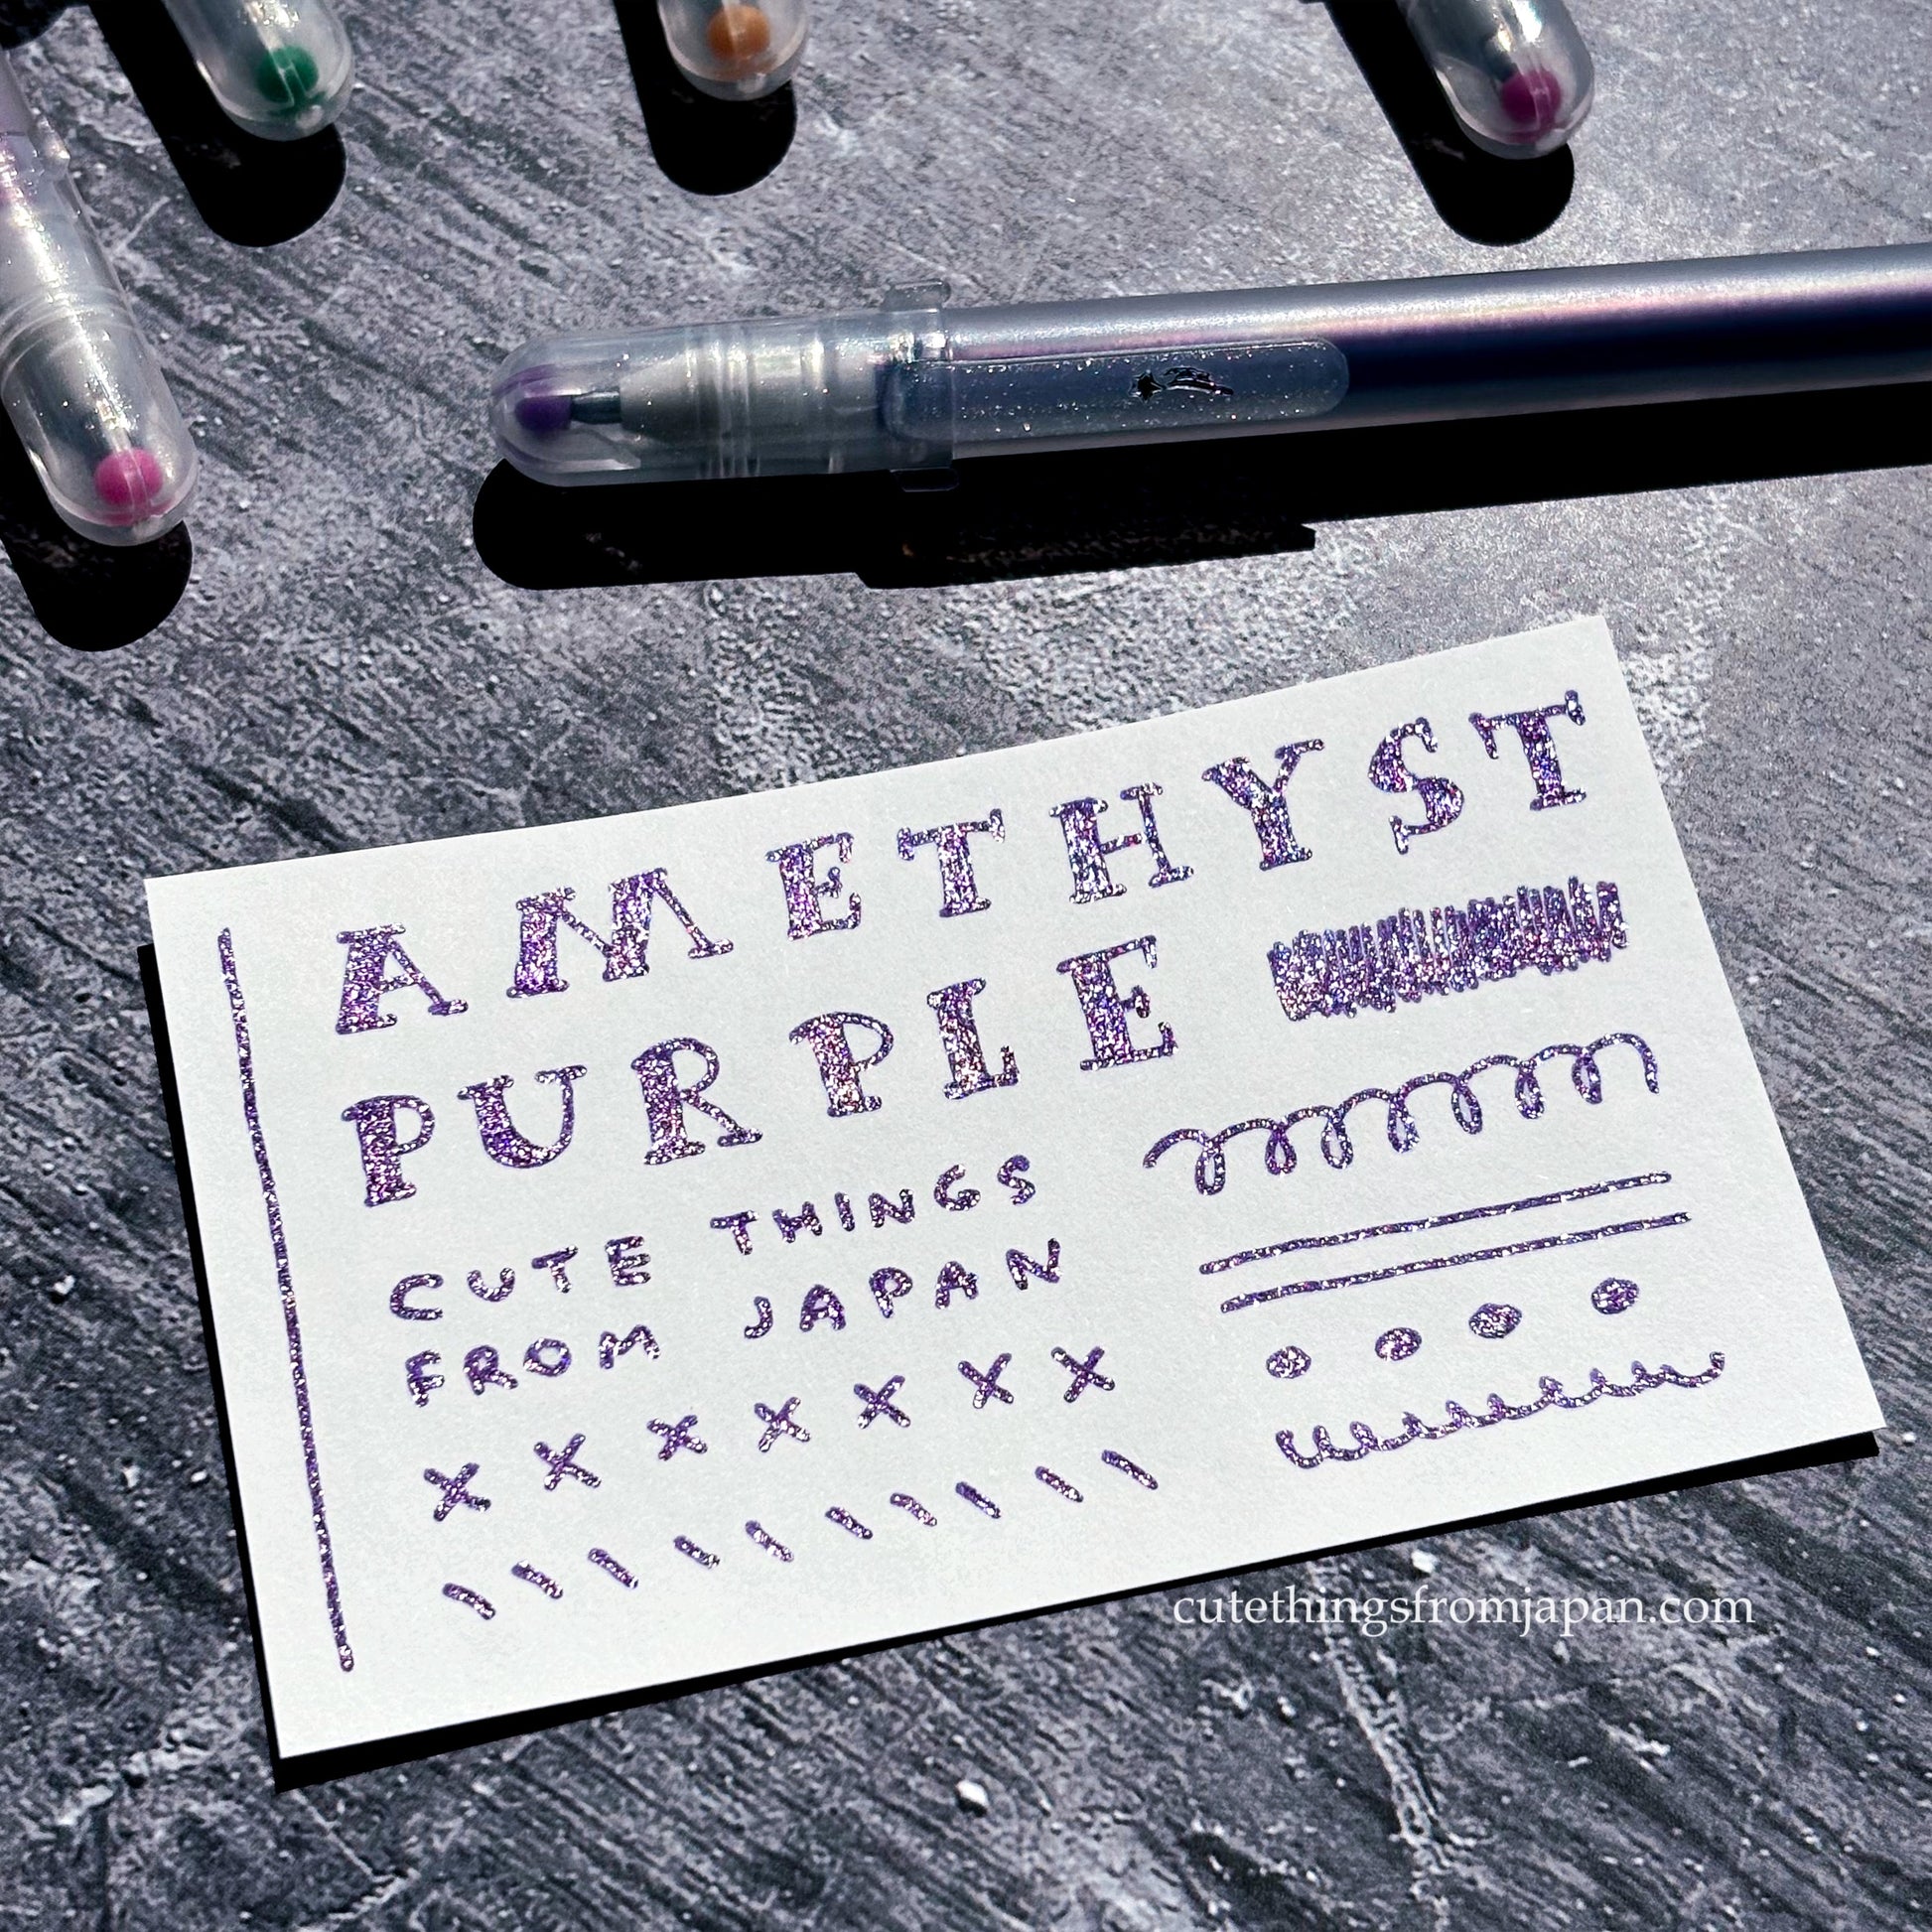 AMETHYST
PURPLE
CUTE THINGS
FROM JAPAN
cutethingsfromjapan.com